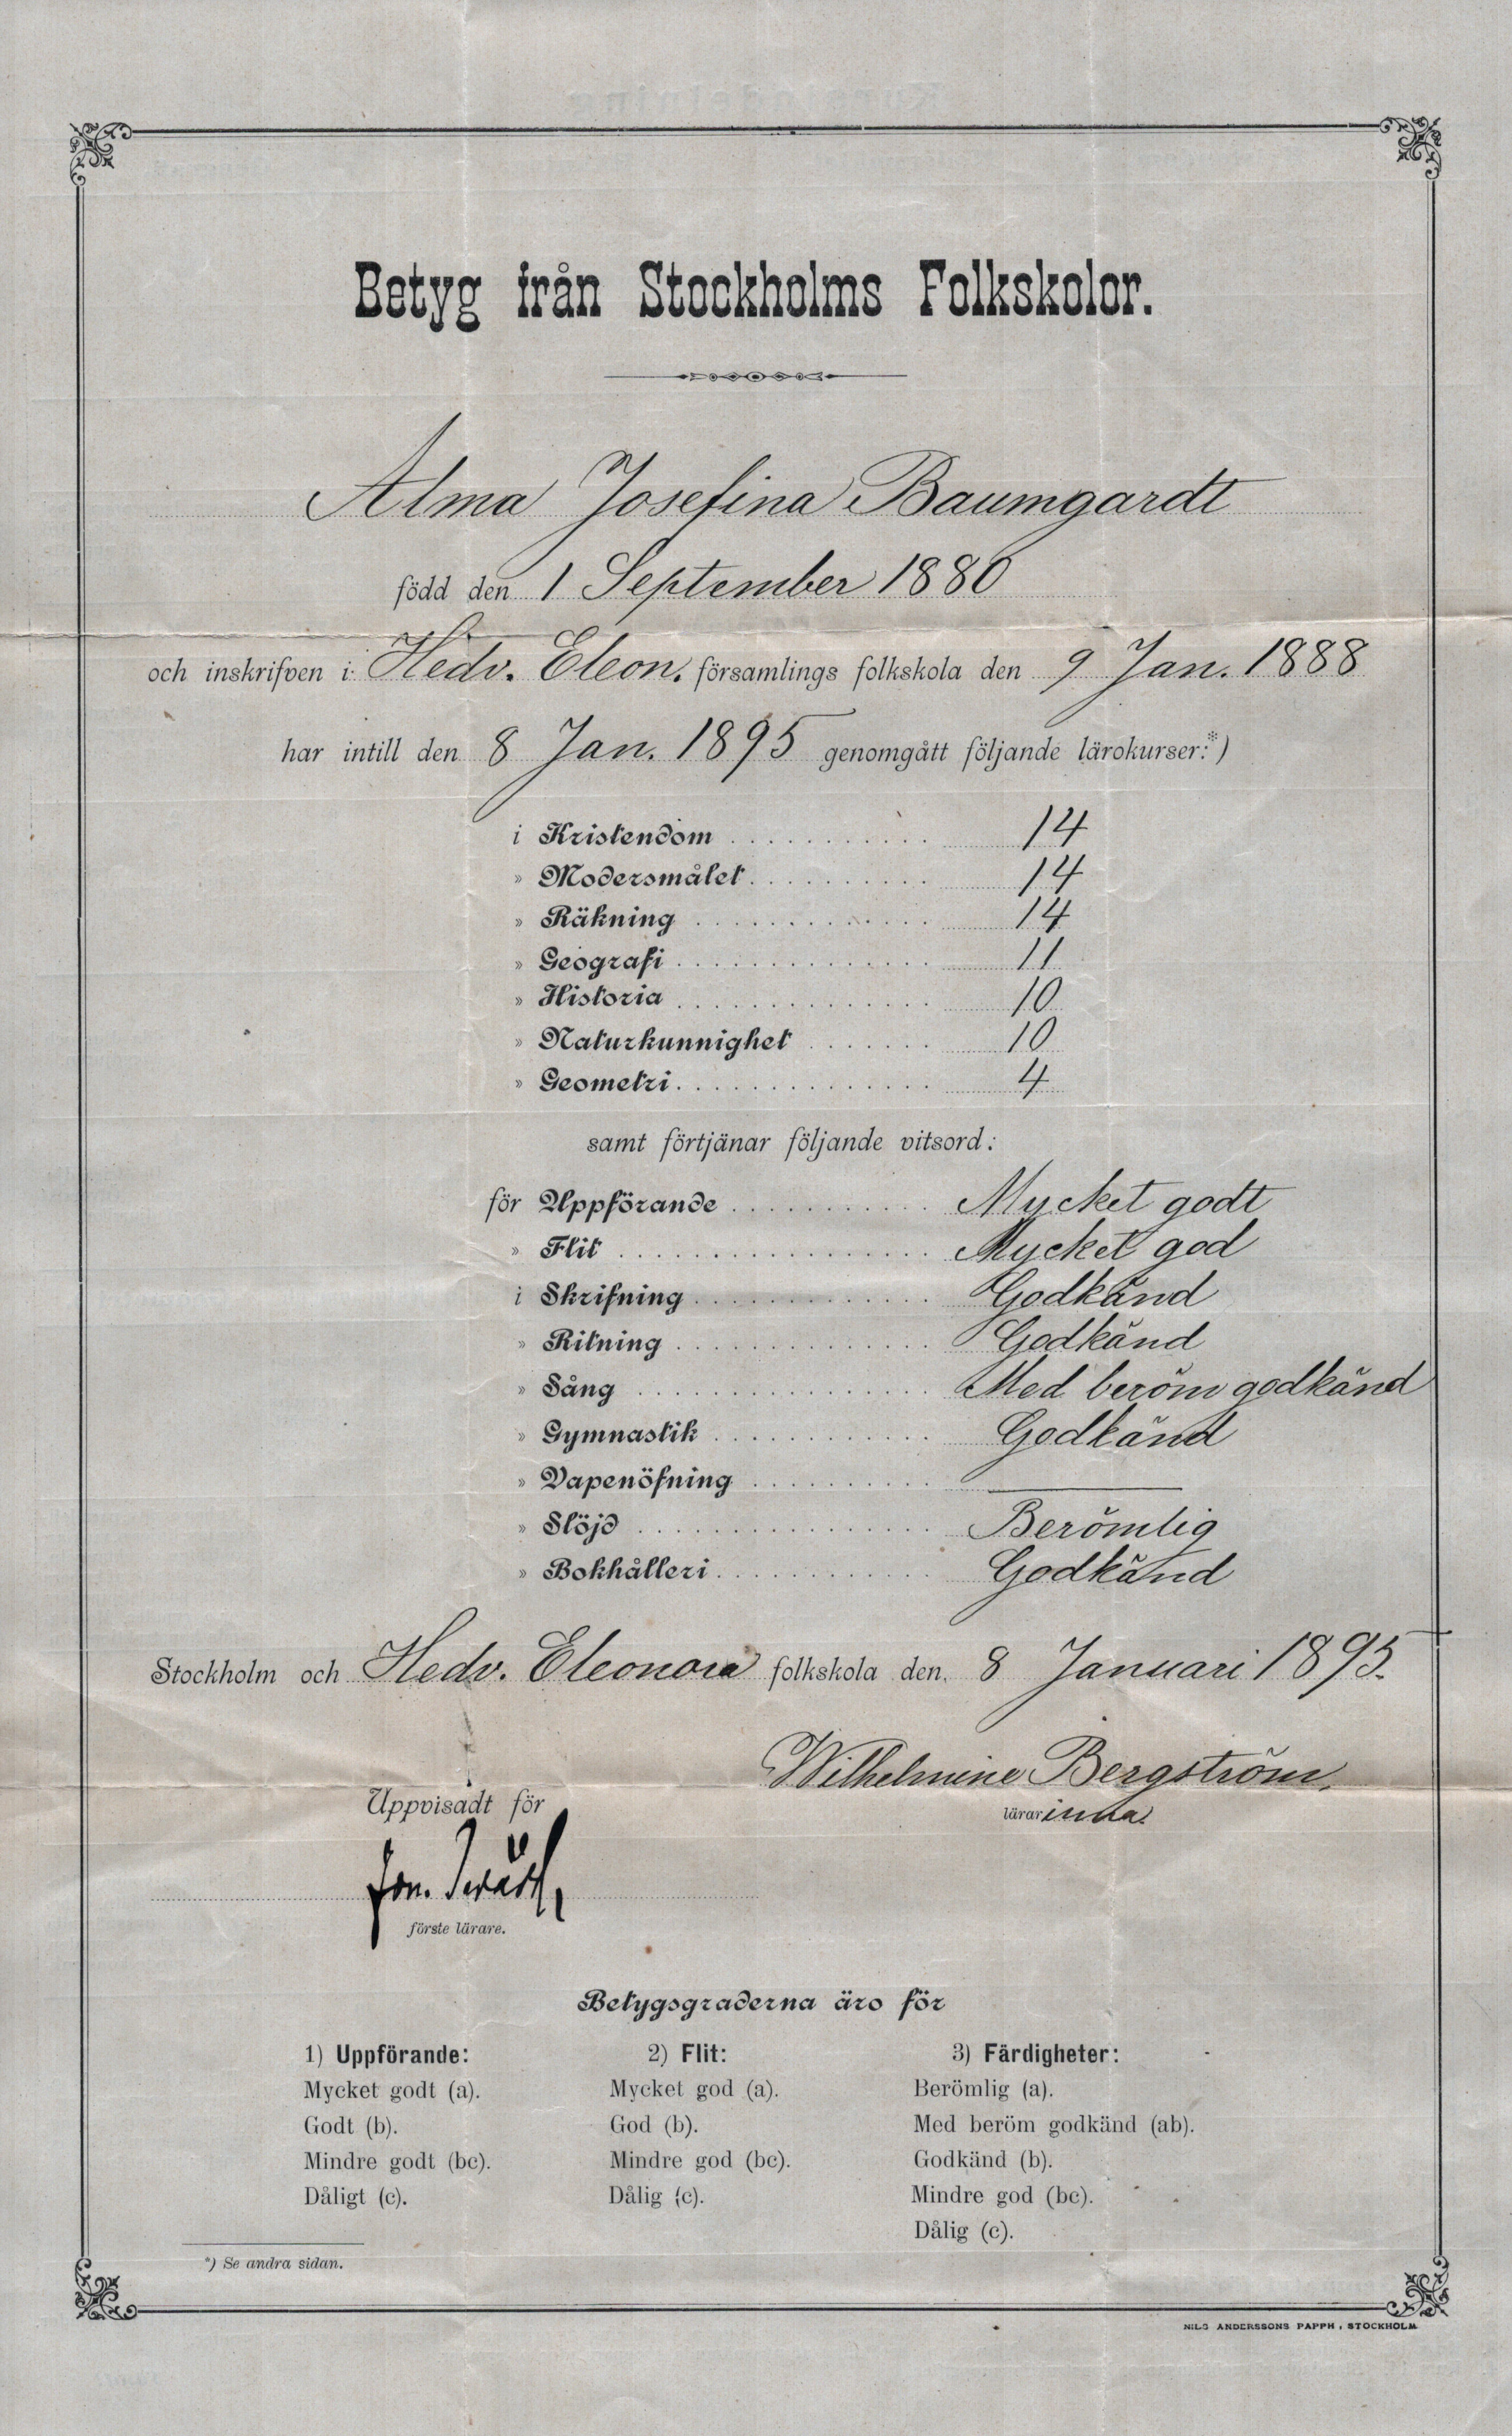 Betyg från Stockholms Folkskolor.
Alma Josefina Baumgardt
född den 1 September 1880
och inskrifven i Hedv. Eleon. församlings folkskola den 9 Jan. 1888
har intill den 8 Jan. 1895 genomgått följande lärokurser:*)
i Kristendom 14
» Modersmålet 14
» Räkning 14
» Geografi 11
» Historia 10
» Naturkunnighet 10
» Geometri 4
samt förtjänar följande vitsord:
för Uppförande Mycket godt
» Flit Mycket god
i Skrifning Godkänd
» Ritning Godkänd
» Sång Med beröm godkänd
» Gymnastik Godkänd
» Vapenöfning
» Slöjd Berömlig
» Bokhålleri Godkänd
Stockholm och Hedv. Eleonora folkskola den 8 Januari 1895.
Wilhelmine Bergström.
lärarinna
Uppvisadt för
förste lärare.
Betygsgraderna äro för
1) Uppförande: 2) Flit: 3) Färdigheter:
Mycket godt (a). Mycket god (a). Berömlig (a).
Godt (b). God (b). Med beröm godkänd (ab).
Mindre godt (bc). Mindre god (bc). Godkänd (b).
Dåligt (c). Dålig (c). Mindre god (bc).
Dålig (c).
*) Se andra sidan.
NILS ANDERSSONS PAPPH., STOCKHOLM